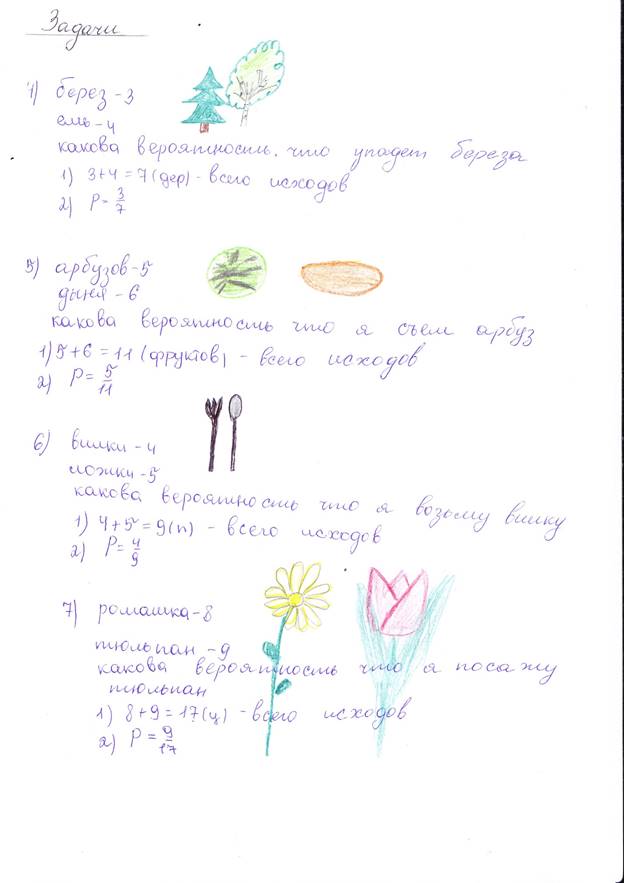 Задачи
4) берез-3
ель-4
какова вероятность, что упадет береза
1) 3+4=7(дер)-всего исходов
2) P=3/7
5) арбузов-5
дыня-6
какова вероятность что я съем арбуз
1) 5+6=11(фруктов) - всего исходов
2) P=5/11
6) вилки-4
ложки-5
какова вероятность что я возьму вилку
1) 4+5=9(п) - всего исходов
2) P=4/9
7) ромашка-8
тюльпан-9
какова вероятность что я посажу
тюльпан
1) 8+9=17(ц) -всего исходов
2) P=9/17